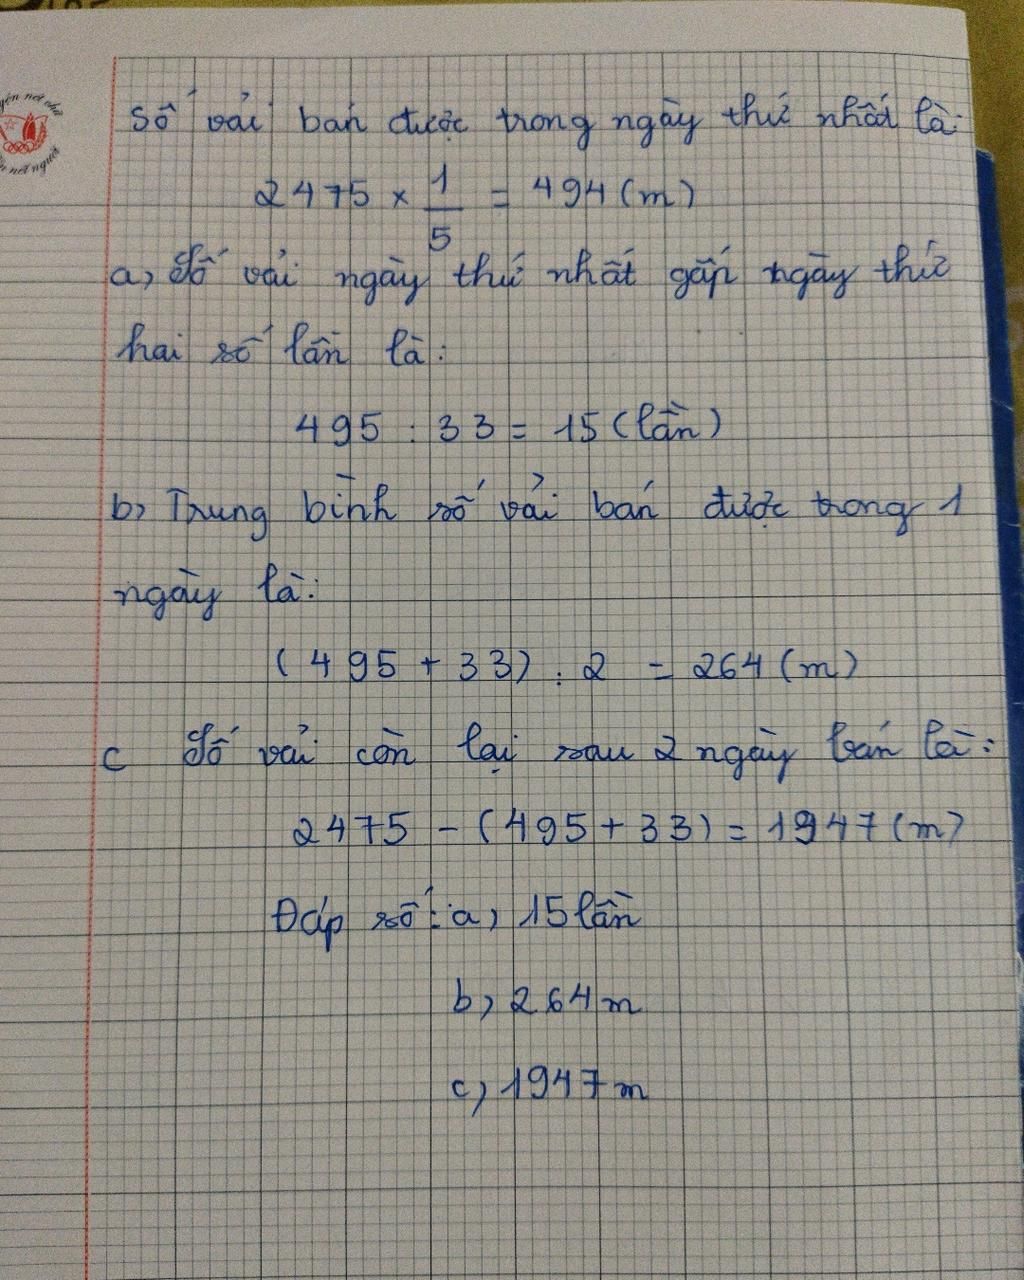 Số vải bán được trong ngày thứ nhất là:
2475 × 1/5 = 494 (m)
a, Số vải ngày thứ nhất gấp ngày thứ
hai số lần là:
495 : 33 = 15 (lần)
b, Trung bình số vải bán được trong 1
ngày là:
(495 + 33) : 2 = 264 (m)
c Số vải còn lại sau 2 ngày bán là:
2475 - (495 + 33) = 1947 (m)
Đáp số: a, 15 lần
b, 264 m
c, 1947 m